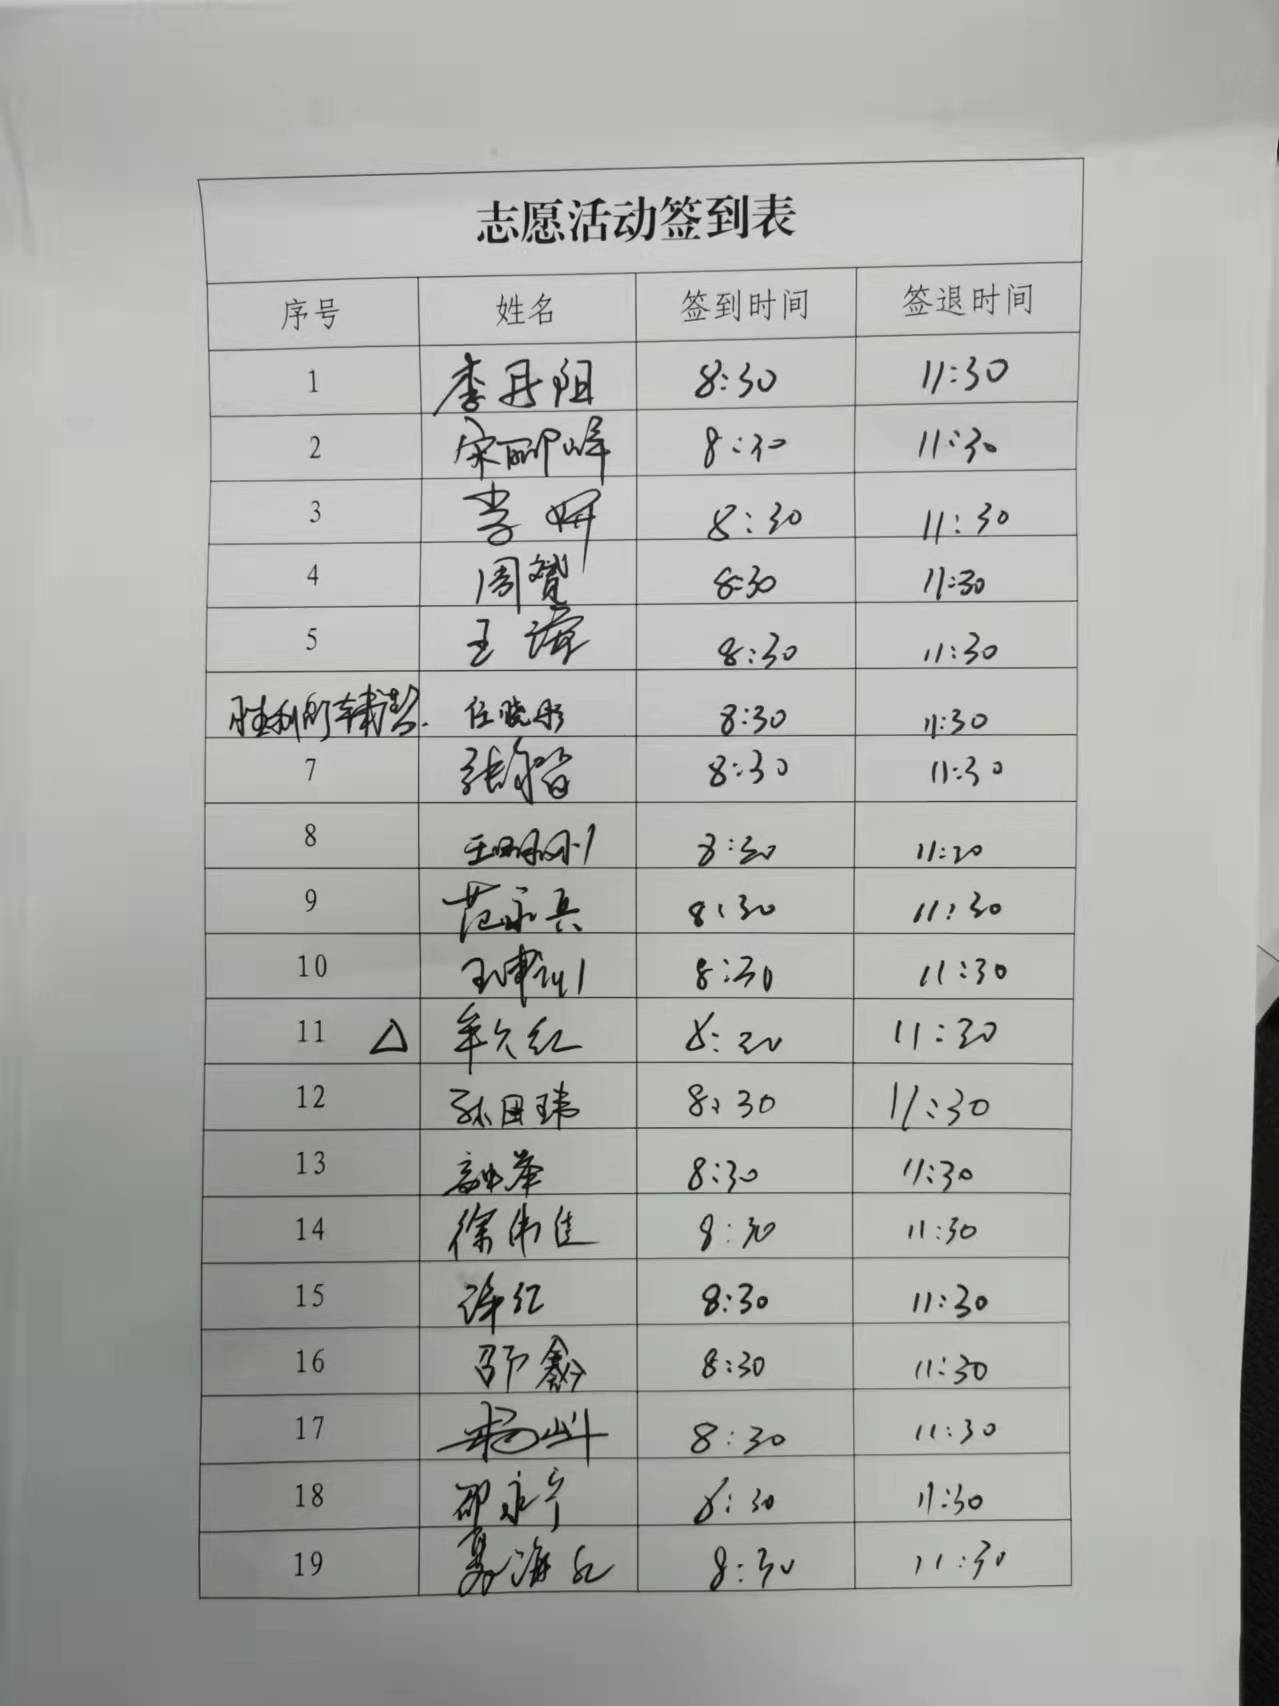 志愿活动签到表
序号 姓名 签到时间 签退时间
1 李丹阳 8:30 11:30
2 宋丽峰 8:30 11:30
3 李妍 8:30 11:30
4 周赞 8:30 11:30
5 王 8:30 11:30
胜利的 任晓彤 8:30 11:30
7 张 8:30 11:30
8 王 8:30 11:30
9 范永兵 8:30 11:30
10 王 8:30 11:30
11 △ 牟久红 8:30 11:30
12 孙田玮 8:30 11:30
13 8:30 11:30
14 徐伟佳 8:30 11:30
15 许红 8:30 11:30
16 邵鑫 8:30 11:30
17 杨 8:30 11:30
18 邵永宁 8:30 11:30
19 聂海红 8:30 11:30